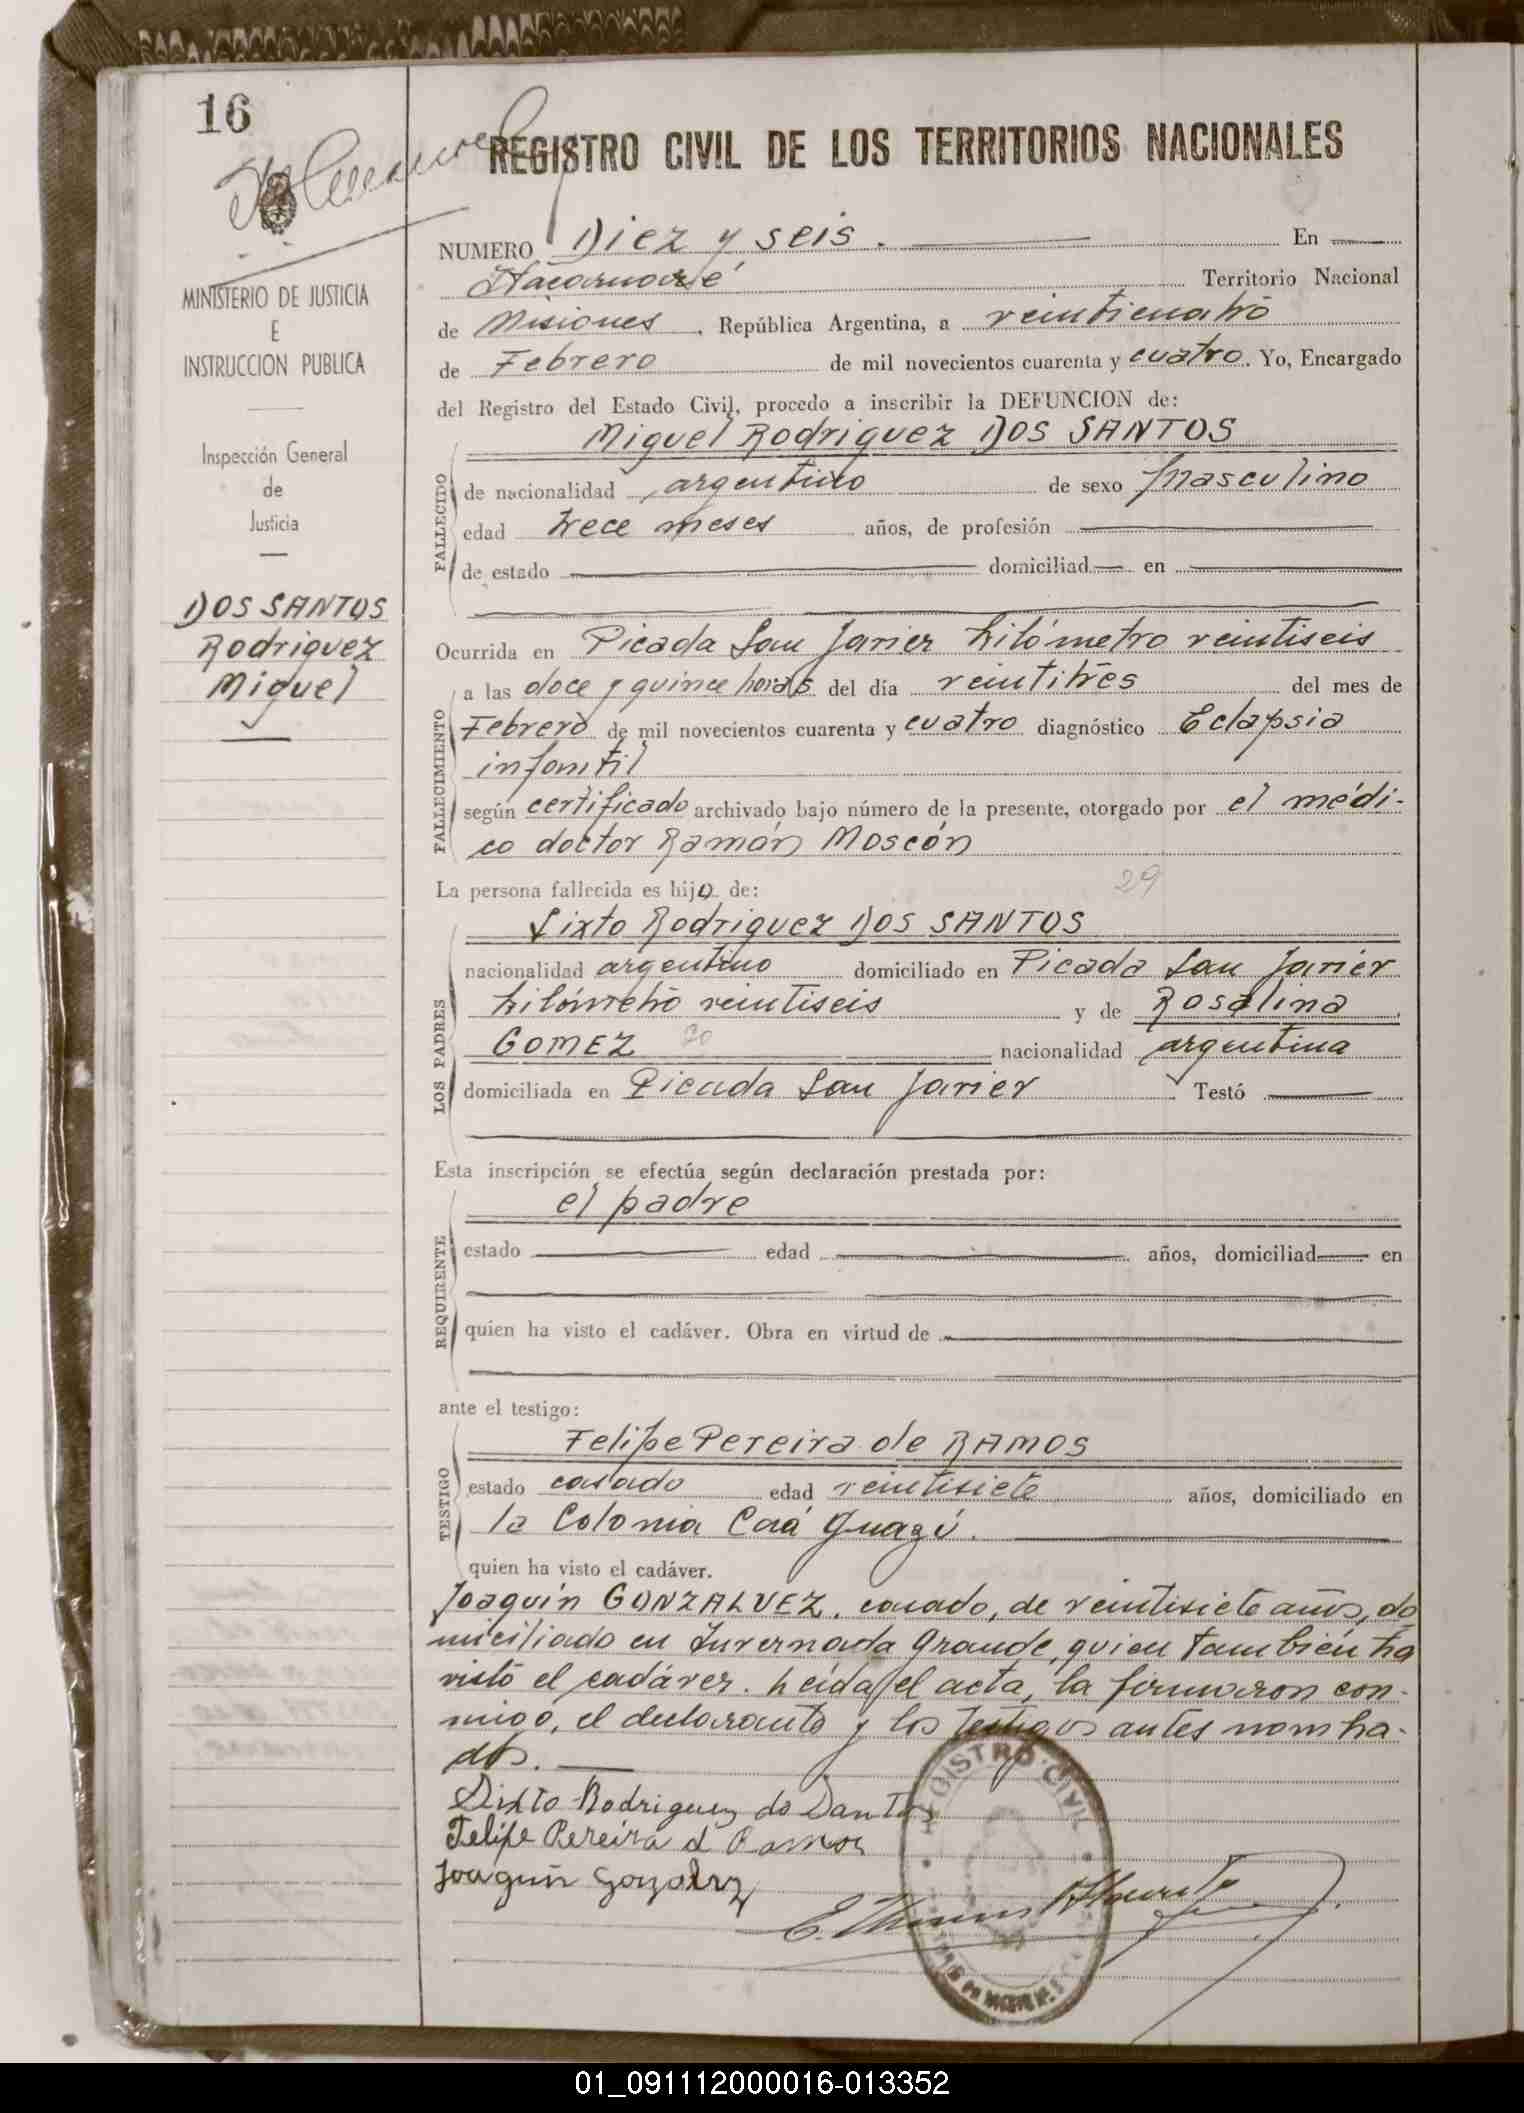 16
REGISTRO CIVIL DE LOS TERRITORIOS NACIONALES
MINISTERIO DE JUSTICIA
E
INSTRUCCION PUBLICA
Inspección General
de
Justicia
DOS SANTOS
Rodriguez
Miguel
NUMERO Diez y seis. En
Itacaruaré Territorio Nacional
de Misiones, República Argentina, a veinticuatro
de Febrero de mil novecientos cuarenta y cuatro. Yo, Encargado
del Registro del Estado Civil, procedo a inscribir la DEFUNCION de:
Miguel Rodriguez DOS SANTOS
FALLECIDO
de nacionalidad argentino de sexo masculino
edad trece meses años, de profesión
de estado domiciliad en
Ocurrida en Picada San Javier kilómetro veintiseis
FALLECIMIENTO
a las doce y quince horas del día veintitrés del mes de
Febrero de mil novecientos cuarenta y cuatro diagnóstico Eclapsia
infantil
según certificado archivado bajo número de la presente, otorgado por el médi-
co doctor Ramón Moscón
La persona fallecida es hijo de: 29
LOS PADRES
Sixto Rodriguez DOS SANTOS
nacionalidad argentino domiciliado en Picada San Javier
kilómetro veintiseis y de Rosalina
GOMEZ 20 nacionalidad argentina
domiciliada en Picada San Javier Testó
Esta inscripción se efectúa según declaración prestada por:
el padre
REQUIRENTE
estado edad años, domiciliad en
quien ha visto el cadáver. Obra en virtud de
ante el testigo:
Felipe Pereira de RAMOS
TESTIGO
estado casado edad veintisiete años, domiciliado en
la Colonia Caá Guazú.
quien ha visto el cadáver.
Joaquín GONZALVEZ, casado, de veintisiete años, do
miciliado en Invernada Grande, quien también ha
visto el cadáver. Leída el acta, la firmaron con-
migo, el declarante y los testigos antes nombra-
dos.
Sixto Rodriguez do Santos
Felipe Pereira d Ramos
Joaquin
REGISTRO CIVIL
01_091112000016-013352